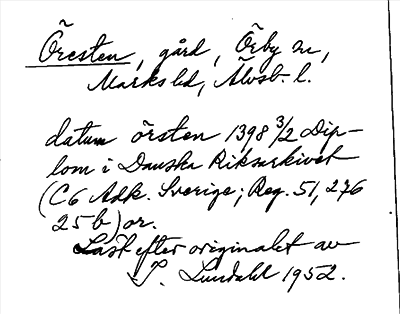 Öresten, gård, Örby sn,
Marks hd, Älvsb. l.
datum örsten 1398 3/2 Dip-
lom i Danska Riksarkivet
(C6 Adk. Sverige; Reg. 51, 276
25 b) or.
Läst efter originalet av
J. Lundahl 1952.